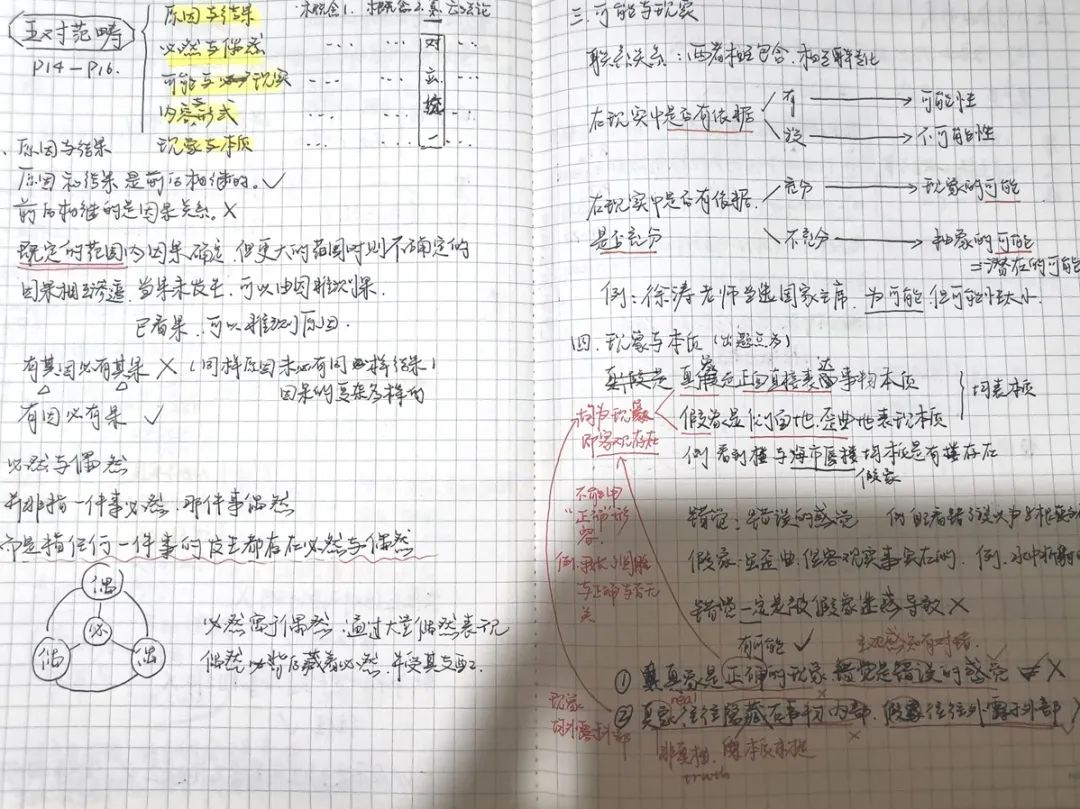 五对范畴
P14-P16.
原因与结果
必然与偶然
可能与现实
内容形式
现象与本质
对立统一
原因与结果
原因和结果是前后相继的。✓
前后相继的是因果关系。×
既定的范围内因果确定,但更大的范围时则不确定的
因果相互渗透,当果未发生,可以由因推测果.
已有果,可以推测原因.
有其因必有其果 × (同样原因未必有同样结果)
因果的复杂多样的
有因必有果 ✓
必然与偶然
并非指一件事必然,那件事偶然
而是指任何一件事的发生都存在必然与偶然
偶
必
偶
偶
必然寓于偶然,通过大量偶然表现
偶然背后藏着必然,并受其支配.
三.可能与现实
联系关系:两者相互包含,相互转化
在现实中是否有依据
有 → 可能性
没 → 不可能性
在现实中是否有依据.
是否充分
充分 → 现实的可能
不充分 → 抽象的可能
⇒潜在的可能
例:徐涛老师当选国家主席,为可能,但可能性太小.
四.现象与本质(出题点多)
真象是正面直接表达事物本质
假象是似面地、歪曲地表现本质
均表本质
均为现象
即客观存在
例 看到楼与海市蜃楼均本质是有楼存在
假象
不能由
"正确"形
容.
与正确与否无
关
错觉:错误的感觉
假象:虽歪曲,但客观实事存在的,例.水中折射
错觉一定是被假象迷惑导致 ×
有可能 ✓
主观感觉有对错.
① 真象是正确的现象 错觉是错误的感觉 ×
real
② 真象往往隐藏在事物内部,假象往往外露于外部
现象
均外露于外部
非真相,
truth